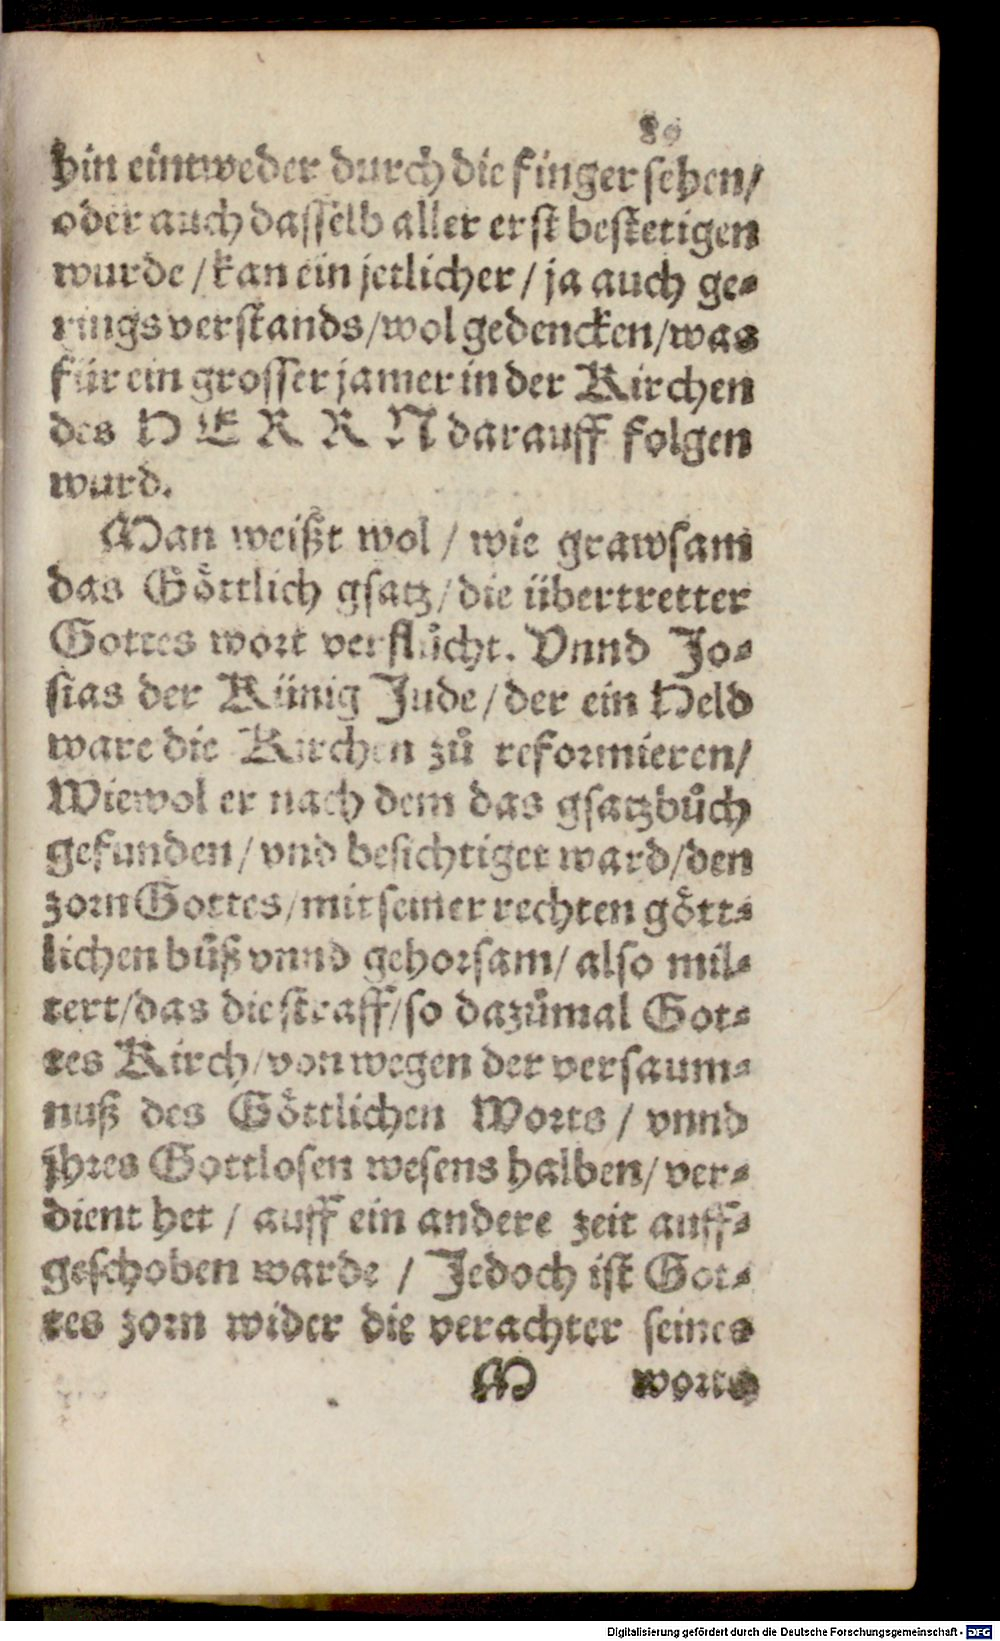 89
hin eintweder durch die finger sehen/
oder auch dasselb aller erst bestetigen
wurde / kan ein jetlicher / ja auch ge-
rings verstands/wol gedencken/was
für ein grosser jamer in der Kirchen
des HERRN darauff folgen
wurd.
Man weißt wol / wie grawsam
das Göttlich gsatz/die übertretter
Gottes wort verflůcht. Vnnd Jo-
sias der Künig Jude/der ein Held
ware die Kirchen zů reformieren/
Wiewol er nach dem das gsatzbůch
gefunden/ vnd besichtiget ward/den
zorn Gottes/mit seiner rechten gött-
lichen bůß vnnd gehorsam/ also mil-
tert/das die straff/so dazůmal Got-
tes Kirch/von wegen der versaum-
nuß des Göttlichen Worts / vnnd
jhres Gottlosen wesens halben/ ver-
dient het / auff ein andere zeit auff-
geschoben warde / Jedoch ist Got-
tes zorn wider die verachter seines
M worts
Digitalisierung gefördert durch die Deutsche Forschungsgemeinschaft - DFG